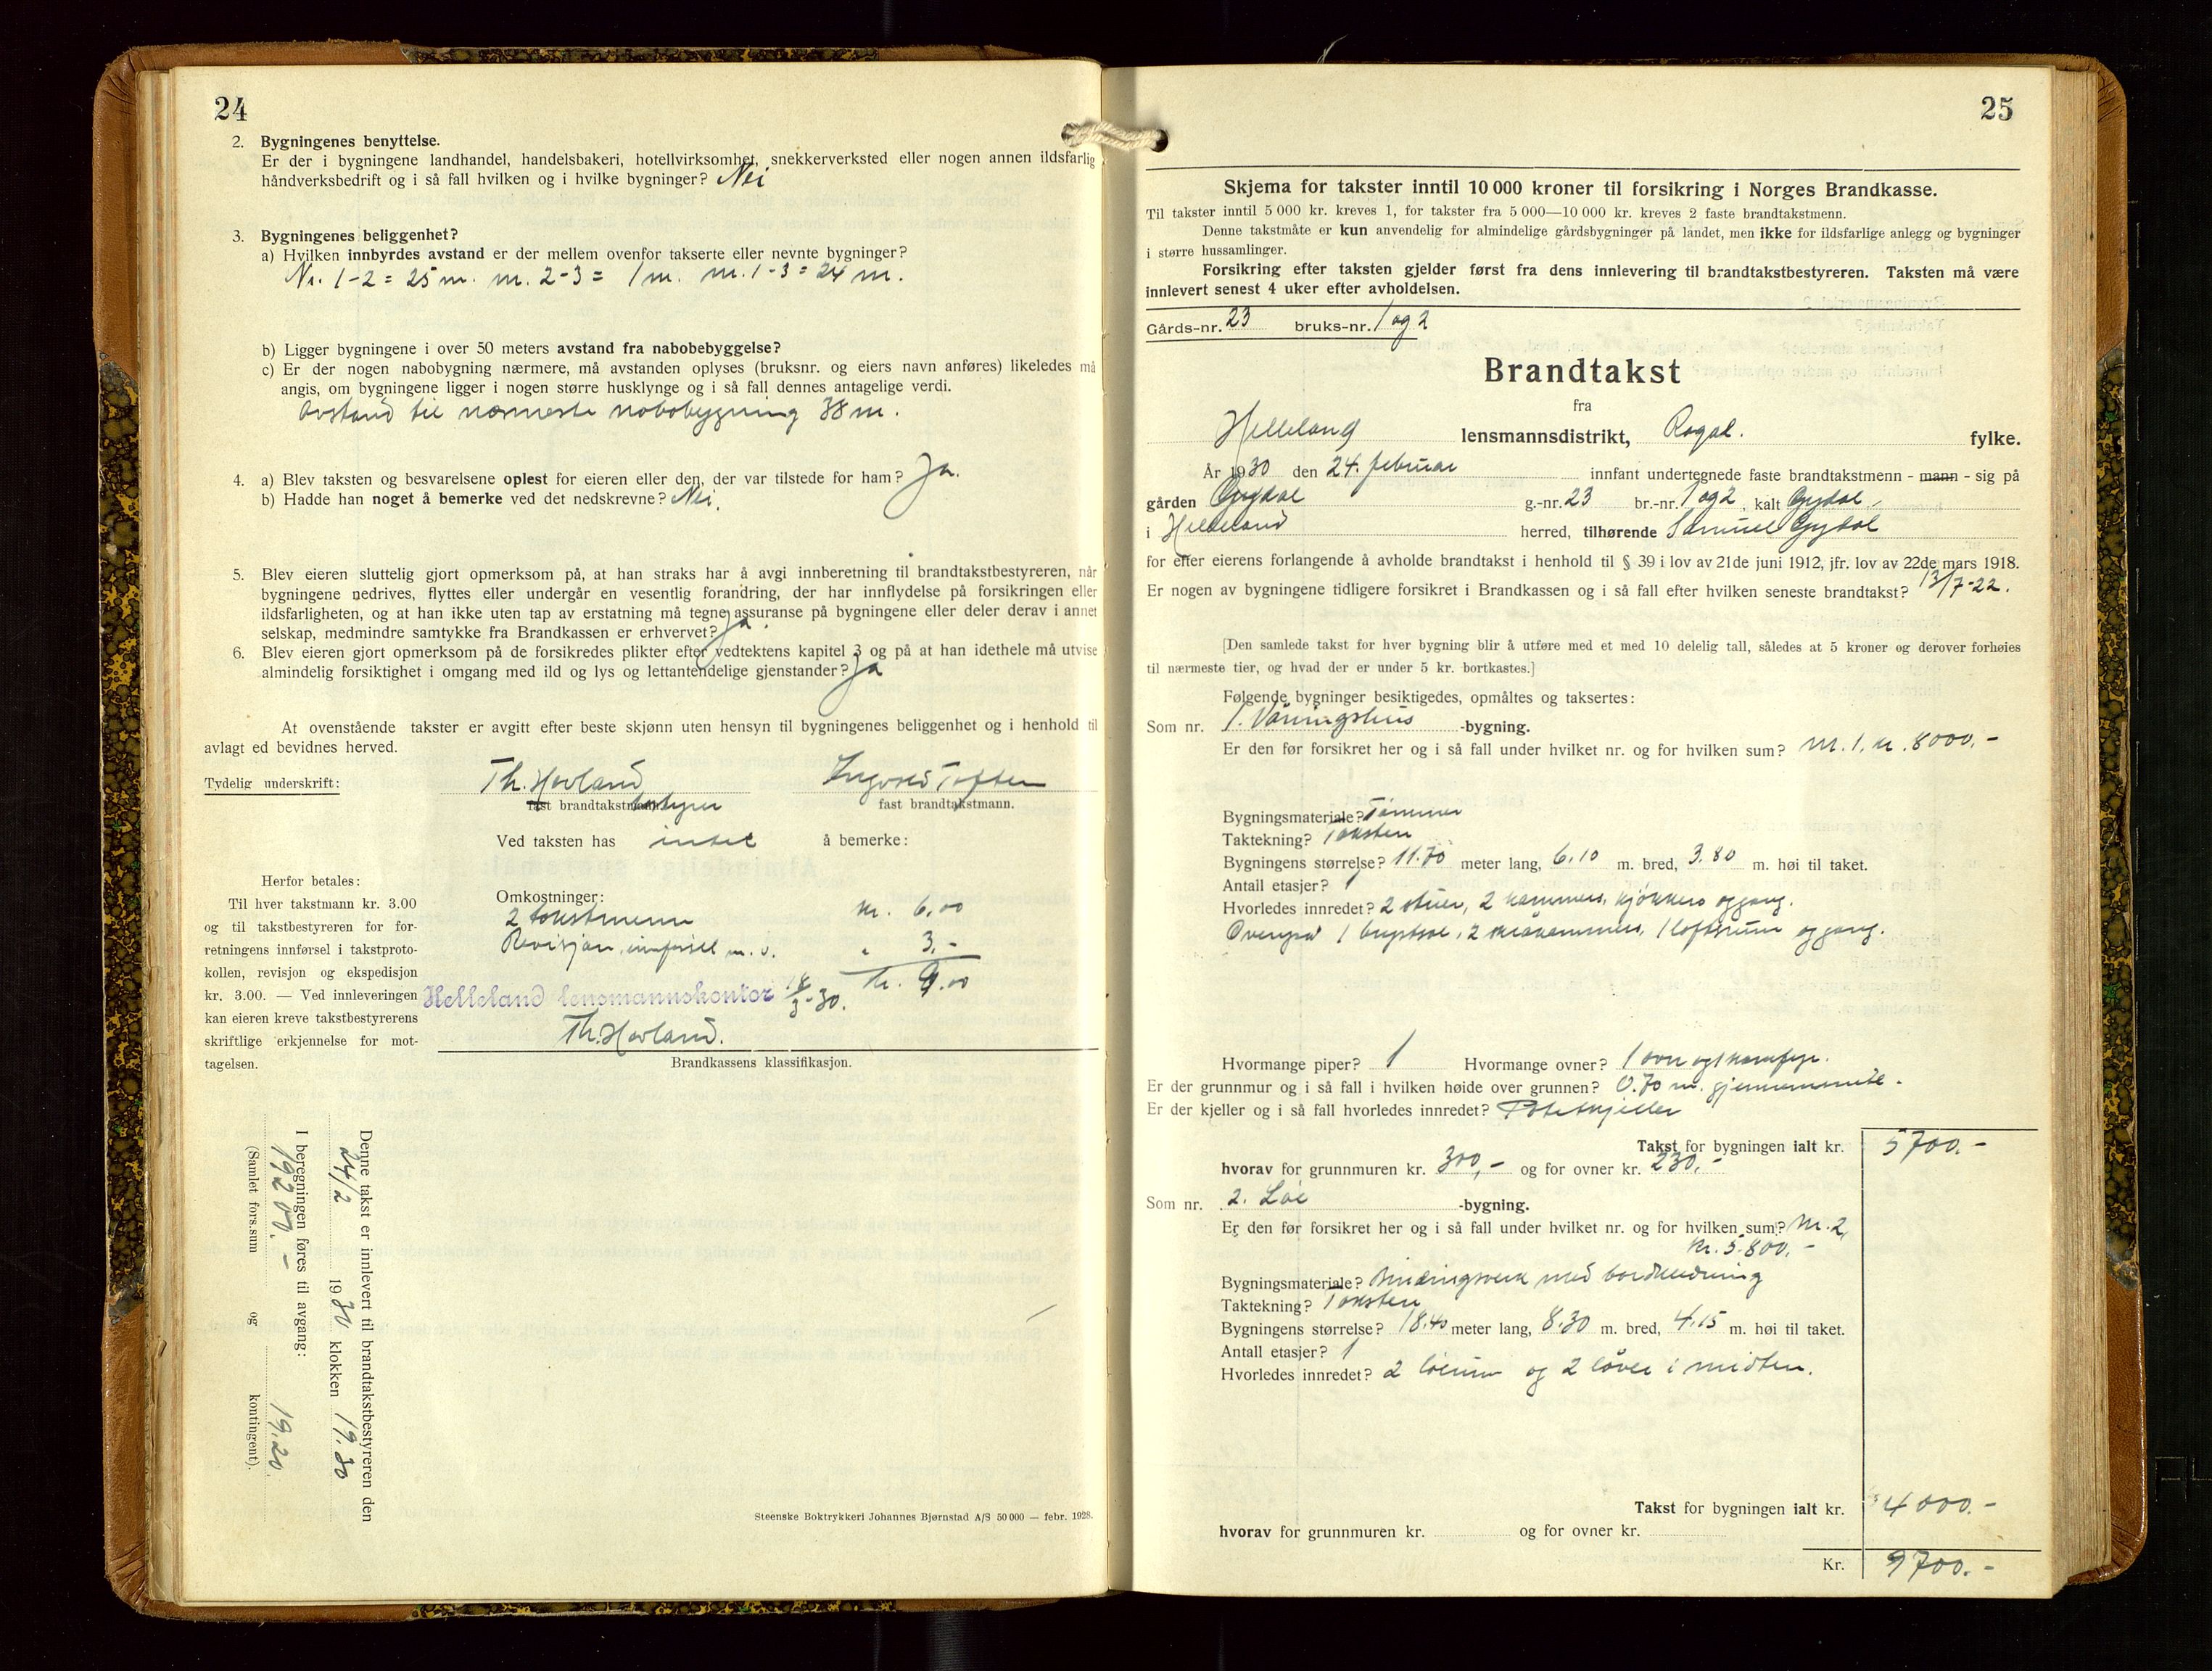 24
2. Bygningenes benyttelse.
Er der i bygningene landhandel, handelsbakeri, hotellvirksomhet, snekkerverksted eller nogen annen ildsfarlig
håndverksbedrift og i så fall hvilken og i hvilke bygninger? Nei
3. Bygningenes beliggenhet?
a) Hvilken innbyrdes avstand er der mellem ovenfor takserte eller nevnte bygninger?
Nr. 1-2 = 25 m. nr. 2-3 = 1 m. nr. 1-3 = 24 m.
b) Ligger bygningene i over 50 meters avstand fra nabobebyggelse?
c) Er der nogen nabobygning nærmere, må avstanden oplyses (bruksnr. og eiers navn anføres) likeledes må
angis, om bygningene ligger i nogen større husklynge og i så fall dennes antagelige verdi.
Avstand til nærmeste nabobygning 38 m.
4. a) Blev taksten og besvarelsene oplest for eieren eller den, der var tilstede for ham? Ja.
b) Hadde han noget å bemerke ved det nedskrevne? Nei.
5. Blev eieren sluttelig gjort opmerksom på, at han straks har å avgi innberetning til brandtakstbestyreren, når
bygningene nedrives, flyttes eller undergår en vesentlig forandring, der har innflydelse på forsikringen eller
ildsfarligheten, og at han ikke uten tap av erstatning må tegne assuranse på bygningene eller deler derav i annet
selskap, medmindre samtykke fra Brandkassen er erhvervet? Ja.
6. Blev eieren gjort opmerksom på de forsikredes plikter efter vedtektens kapitel 3 og på at han idethele må utvise
almindelig forsiktighet i omgang med ild og lys og lettantendelige gjenstander? Ja
At ovenstående takster er avgitt efter beste skjønn uten hensyn til bygningenes beliggenhet og i henhold til
avlagt ed bevidnes herved.
Tydelig underskrift: Th. Hovland Ingvald Toften
fast brandtakstmann. bestyrer fast brandtakstmann.
Ved taksten has intet å bemerke:
Herfor betales:
Til hver takstmann kr. 3.00
og til takstbestyreren for for-
retningens innførsel i takstproto-
kollen, revisjon og ekspedisjon
kr. 3.00. — Ved innleveringen
kan eieren kreve takstbestyrerens
skriftlige erkjennelse for mot-
tagelsen.
Omkostninger:
2 takstmenn kr. 6,00
Revisjon, innførsel m. v. " 3,-
kr. 9.00
Helleland lensmannskontor 18/3-30.
Th. Hovland.
Brandkassens klassifikasjon.
Denne takst er innlevert til brandtakstbestyreren den
24/2 1930 klokken 19.30
I beregningen føres til avgang:
19200.- 19.20.
(Samlet fors.sum og kontingent).
Steenske Boktrykkeri Johannes Bjørnstad A/S 50 000 — febr. 1928.
25
Skjema for takster inntil 10 000 kroner til forsikring i Norges Brandkasse.
Til takster inntil 5 000 kr. kreves 1, for takster fra 5 000—10 000 kr. kreves 2 faste brandtakstmenn.
Denne takstmåte er kun anvendelig for almindelige gårdsbygninger på landet, men ikke for ildsfarlige anlegg og bygninger
i større hussamlinger.
Forsikring efter taksten gjelder først fra dens innlevering til brandtakstbestyreren. Taksten må være
innlevert senest 4 uker efter avholdelsen.
Gårds-nr. 23 bruks-nr. 1 og 2
Brandtakst
fra
Helleland lensmannsdistrikt, Rogal. fylke.
År 1930 den 24. februar innfant undertegnede faste brandtakstmenn - mann - sig på
gården Gydal g.-nr. 23 br.-nr. 1 og 2, kalt Gydal,
i Helleland herred, tilhørende Samuel Gydal
for efter eierens forlangende å avholde brandtakst i henhold til § 39 i lov av 21de juni 1912, jfr. lov av 22de mars 1918.
Er nogen av bygningene tidligere forsikret i Brandkassen og i så fall efter hvilken seneste brandtakst? 13/7-22.
[Den samlede takst for hver bygning blir å utføre med et med 10 delelig tall, således at 5 kroner og derover forhøies
til nærmeste tier, og hvad der er under 5 kr. bortkastes.]
Følgende bygninger besiktigedes, opmåltes og taksertes:
Som nr. 1. Våningshus -bygning.
Er den før forsikret her og i så fall under hvilket nr. og for hvilken sum? Nr. 1, kr. 8000,-
Bygningsmateriale? Tømmer
Taktekning? Taksten
Bygningens størrelse? 11.70 meter lang, 6.10 m. bred, 3.80 m. høi til taket.
Antall etasjer? 1
Hvorledes innredet? 2 stuer, 2 kammers, kjøkken og gang.
Ovenpå 1 brystsal, 2 skråkammers, 1 loftsrum og gang.
Hvormange piper? 1 Hvormange ovner? 1 ovn og 1 komfyr.
Er der grunnmur og i så fall i hvilken høide over grunnen? 0.70 m. gjennemsnitl.
Er der kjeller og i så fall hvorledes innredet? Potetkjeller
Takst for bygningen ialt kr. 5700.-
hvorav for grunnmuren kr. 300,- og for ovner kr. 230.-
Som nr. 2. Løe -bygning.
Er den før forsikret her og i så fall under hvilket nr. og for hvilken sum? Nr. 2,
kr. 5.800,-
Bygningsmateriale? Bindingsverk med bordkledning
Taktekning? Taksten
Bygningens størrelse? 18.40 meter lang, 8.30 m. bred, 4.15 m. høi til taket.
Antall etasjer? 1
Hvorledes innredet? 2 løerum og 2 låver i midten.
Takst for bygningen ialt kr. 4000.-
hvorav for grunnmuren kr. og for ovner kr.
Kr. 9700.-